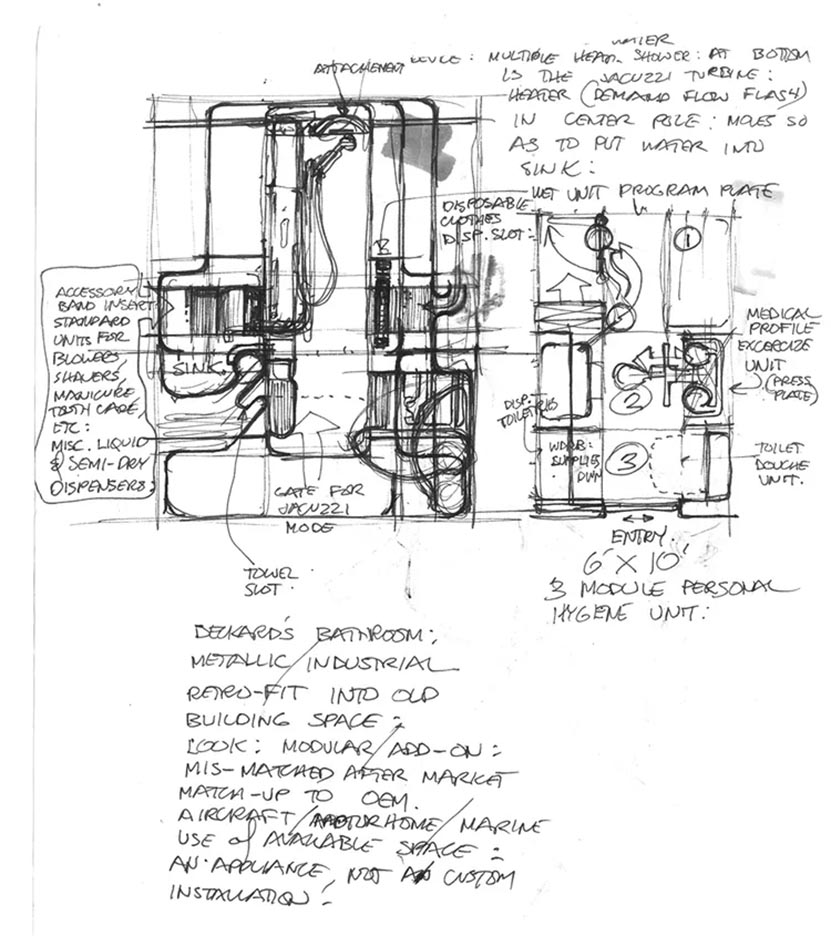 WATER
DEVICE: MULTIPLE HEAD SHOWER: AT BOTTOM
IS THE JACUZZI TURBINE:
HEATER (DEMAND FLOW FLASH)
IN CENTER PILE: MOLES SO
AS TO PUT WATER INTO
SINK:
ATTACHEMENT
WET UNIT PROGRAM PLATE
DISPOSABLE
CLOTHES
DISP. SLOT:
1
ACCESSORY
BAND INSERT
STANDARD
UNITS FOR
BLOWERS
SHAVERS,
MANICURE
TOOTH CARE,
ETC:
MISC. LIQUID
& SEMI-DRY
DISPENSERS:
SINK
MEDICAL
PROFILE
EXCERCIZE
UNIT
(PRESS
PLATE)
2
DISP.
TOILETRIES
WDRB:
SUPPLIES
3
TOILET
DOUCHE
UNIT.
GATE FOR
JACUZZI
MODE
TOWEL
SLOT.
ENTRY.
6' X 10'
3 MODULE PERSONAL
HYGENE UNIT:
DECKARD'S BATHROOM;
METALLIC INDUSTRIAL
RETRO-FIT INTO OLD
BUILDING SPACE:
LOOK: MODULAR ADD-ON:
MIS-MATCHED AFTER MARKET
MATCH-UP TO OEM.
AIRCRAFT / MOTORHOME / MARINE
USE of AVAILABLE SPACE:
AN APPLIANCE, NOT A CUSTOM
INSTALLATION!